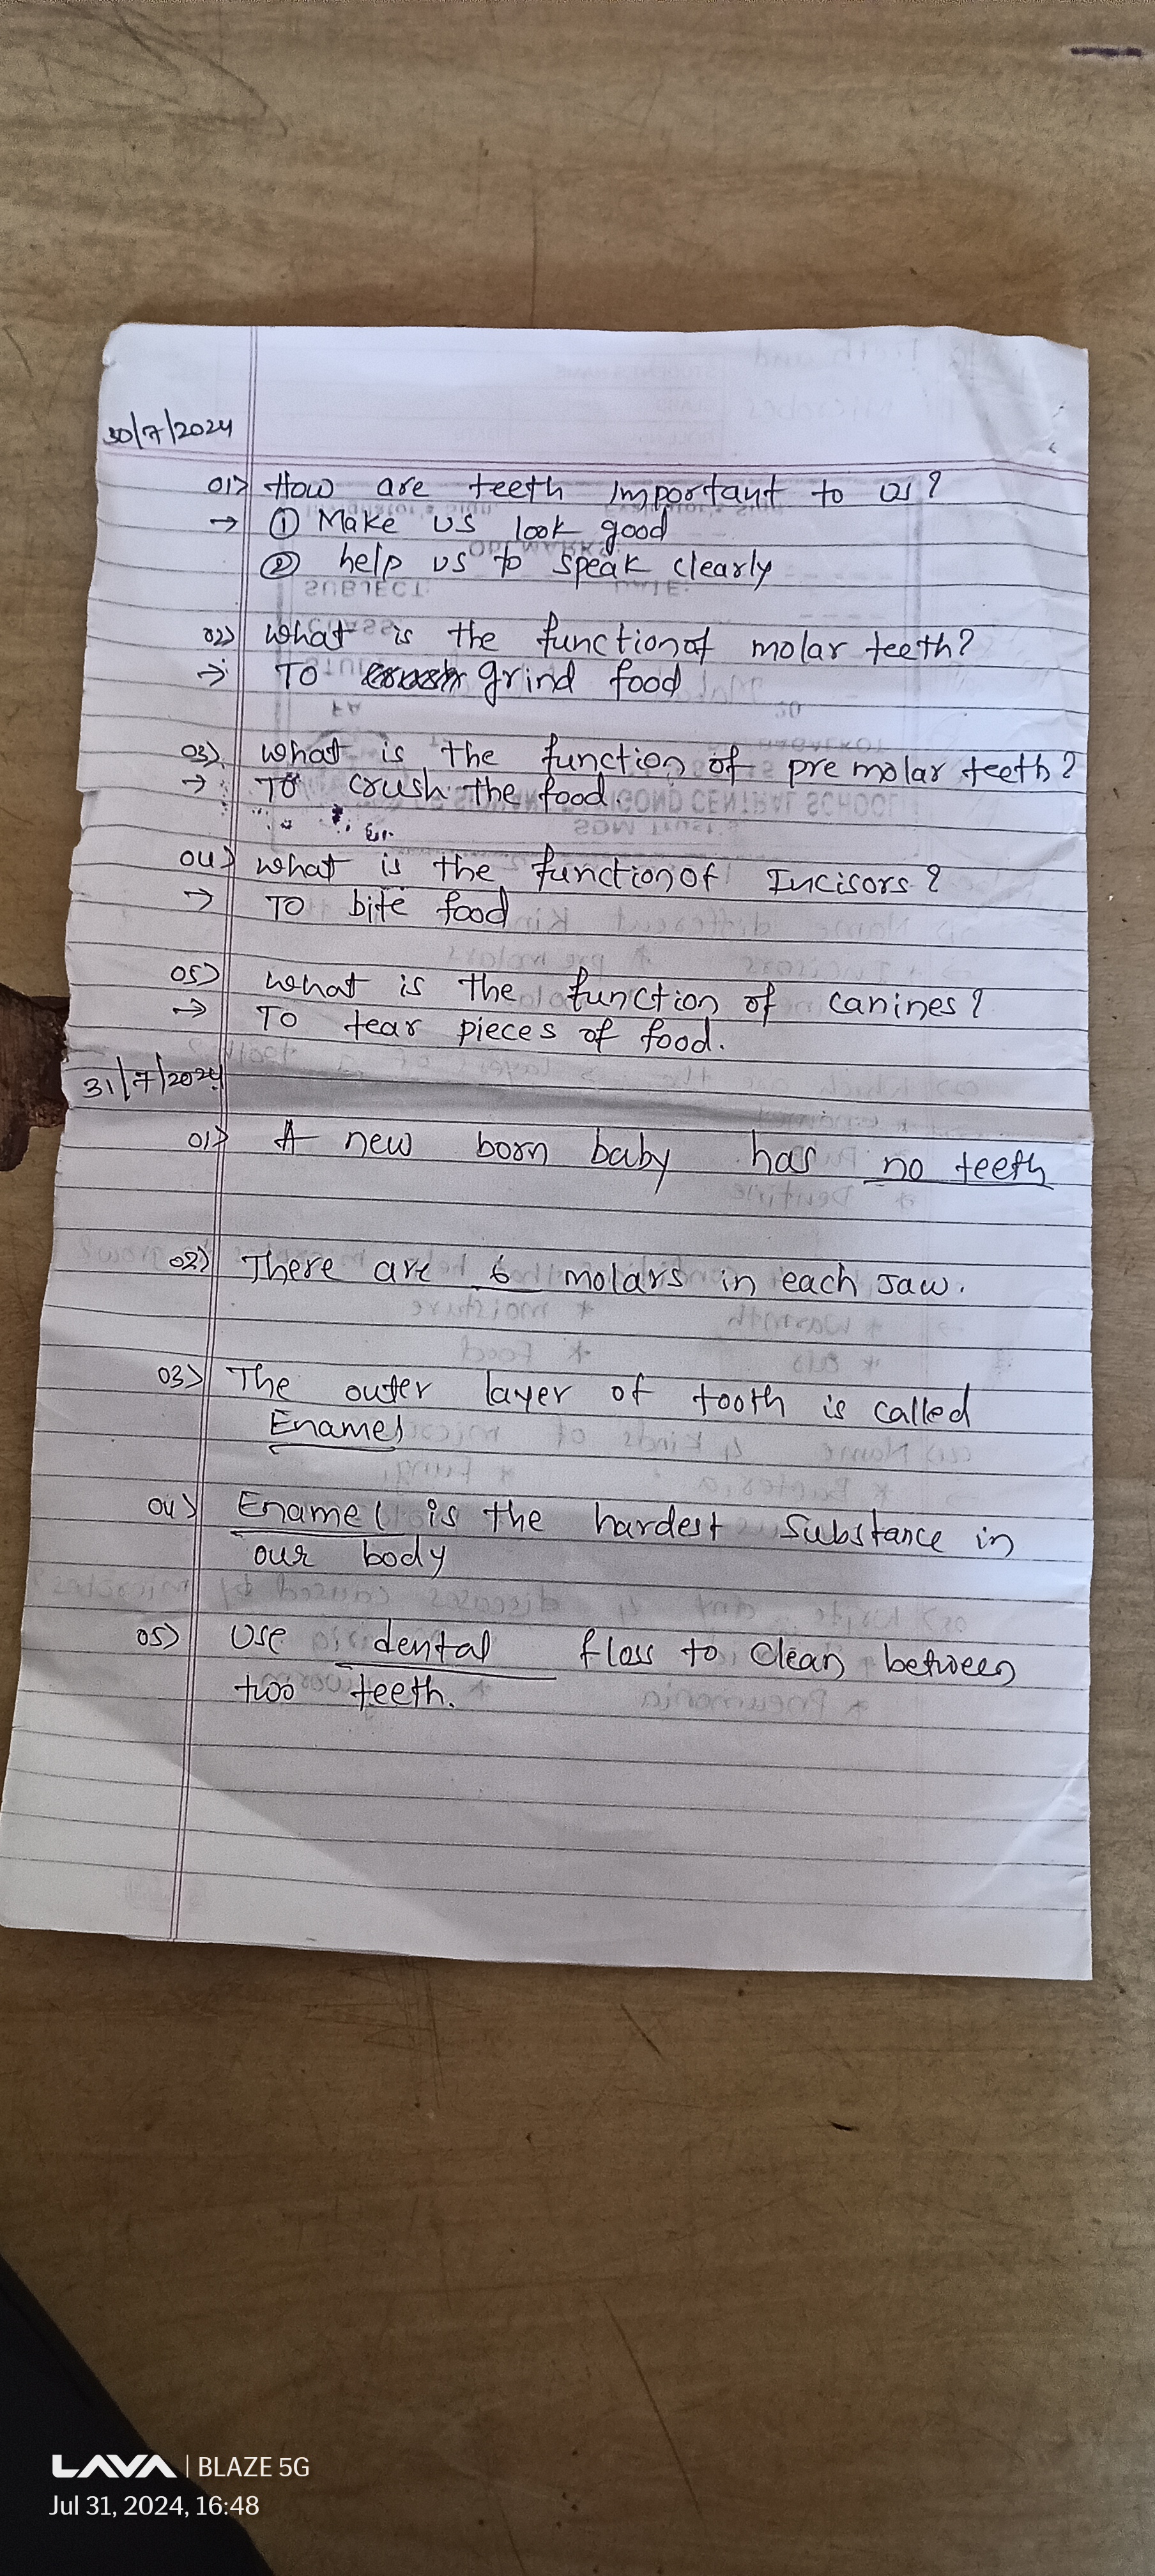 30/7/2024
01> How are teeth important to us?
→ ① Make us look good
② help us to speak clearly
02> What is the function of molar teeth?
→ TO grind food
03> What is the function of pre molar teeth?
→ TO crush the food.
04> What is the function of Incisors?
→ TO bite food
05> What is the function of canines?
→ TO tear pieces of food.
31/7/2024
01> A new born baby has no teeth
02> There are 6 molars in each Jaw.
03> The outer layer of tooth is called
Enamel
04> Enamel is the hardest Substance in
our body
05> Use dental floss to clean between
two teeth.
LAVA | BLAZE 5G
Jul 31, 2024, 16:48